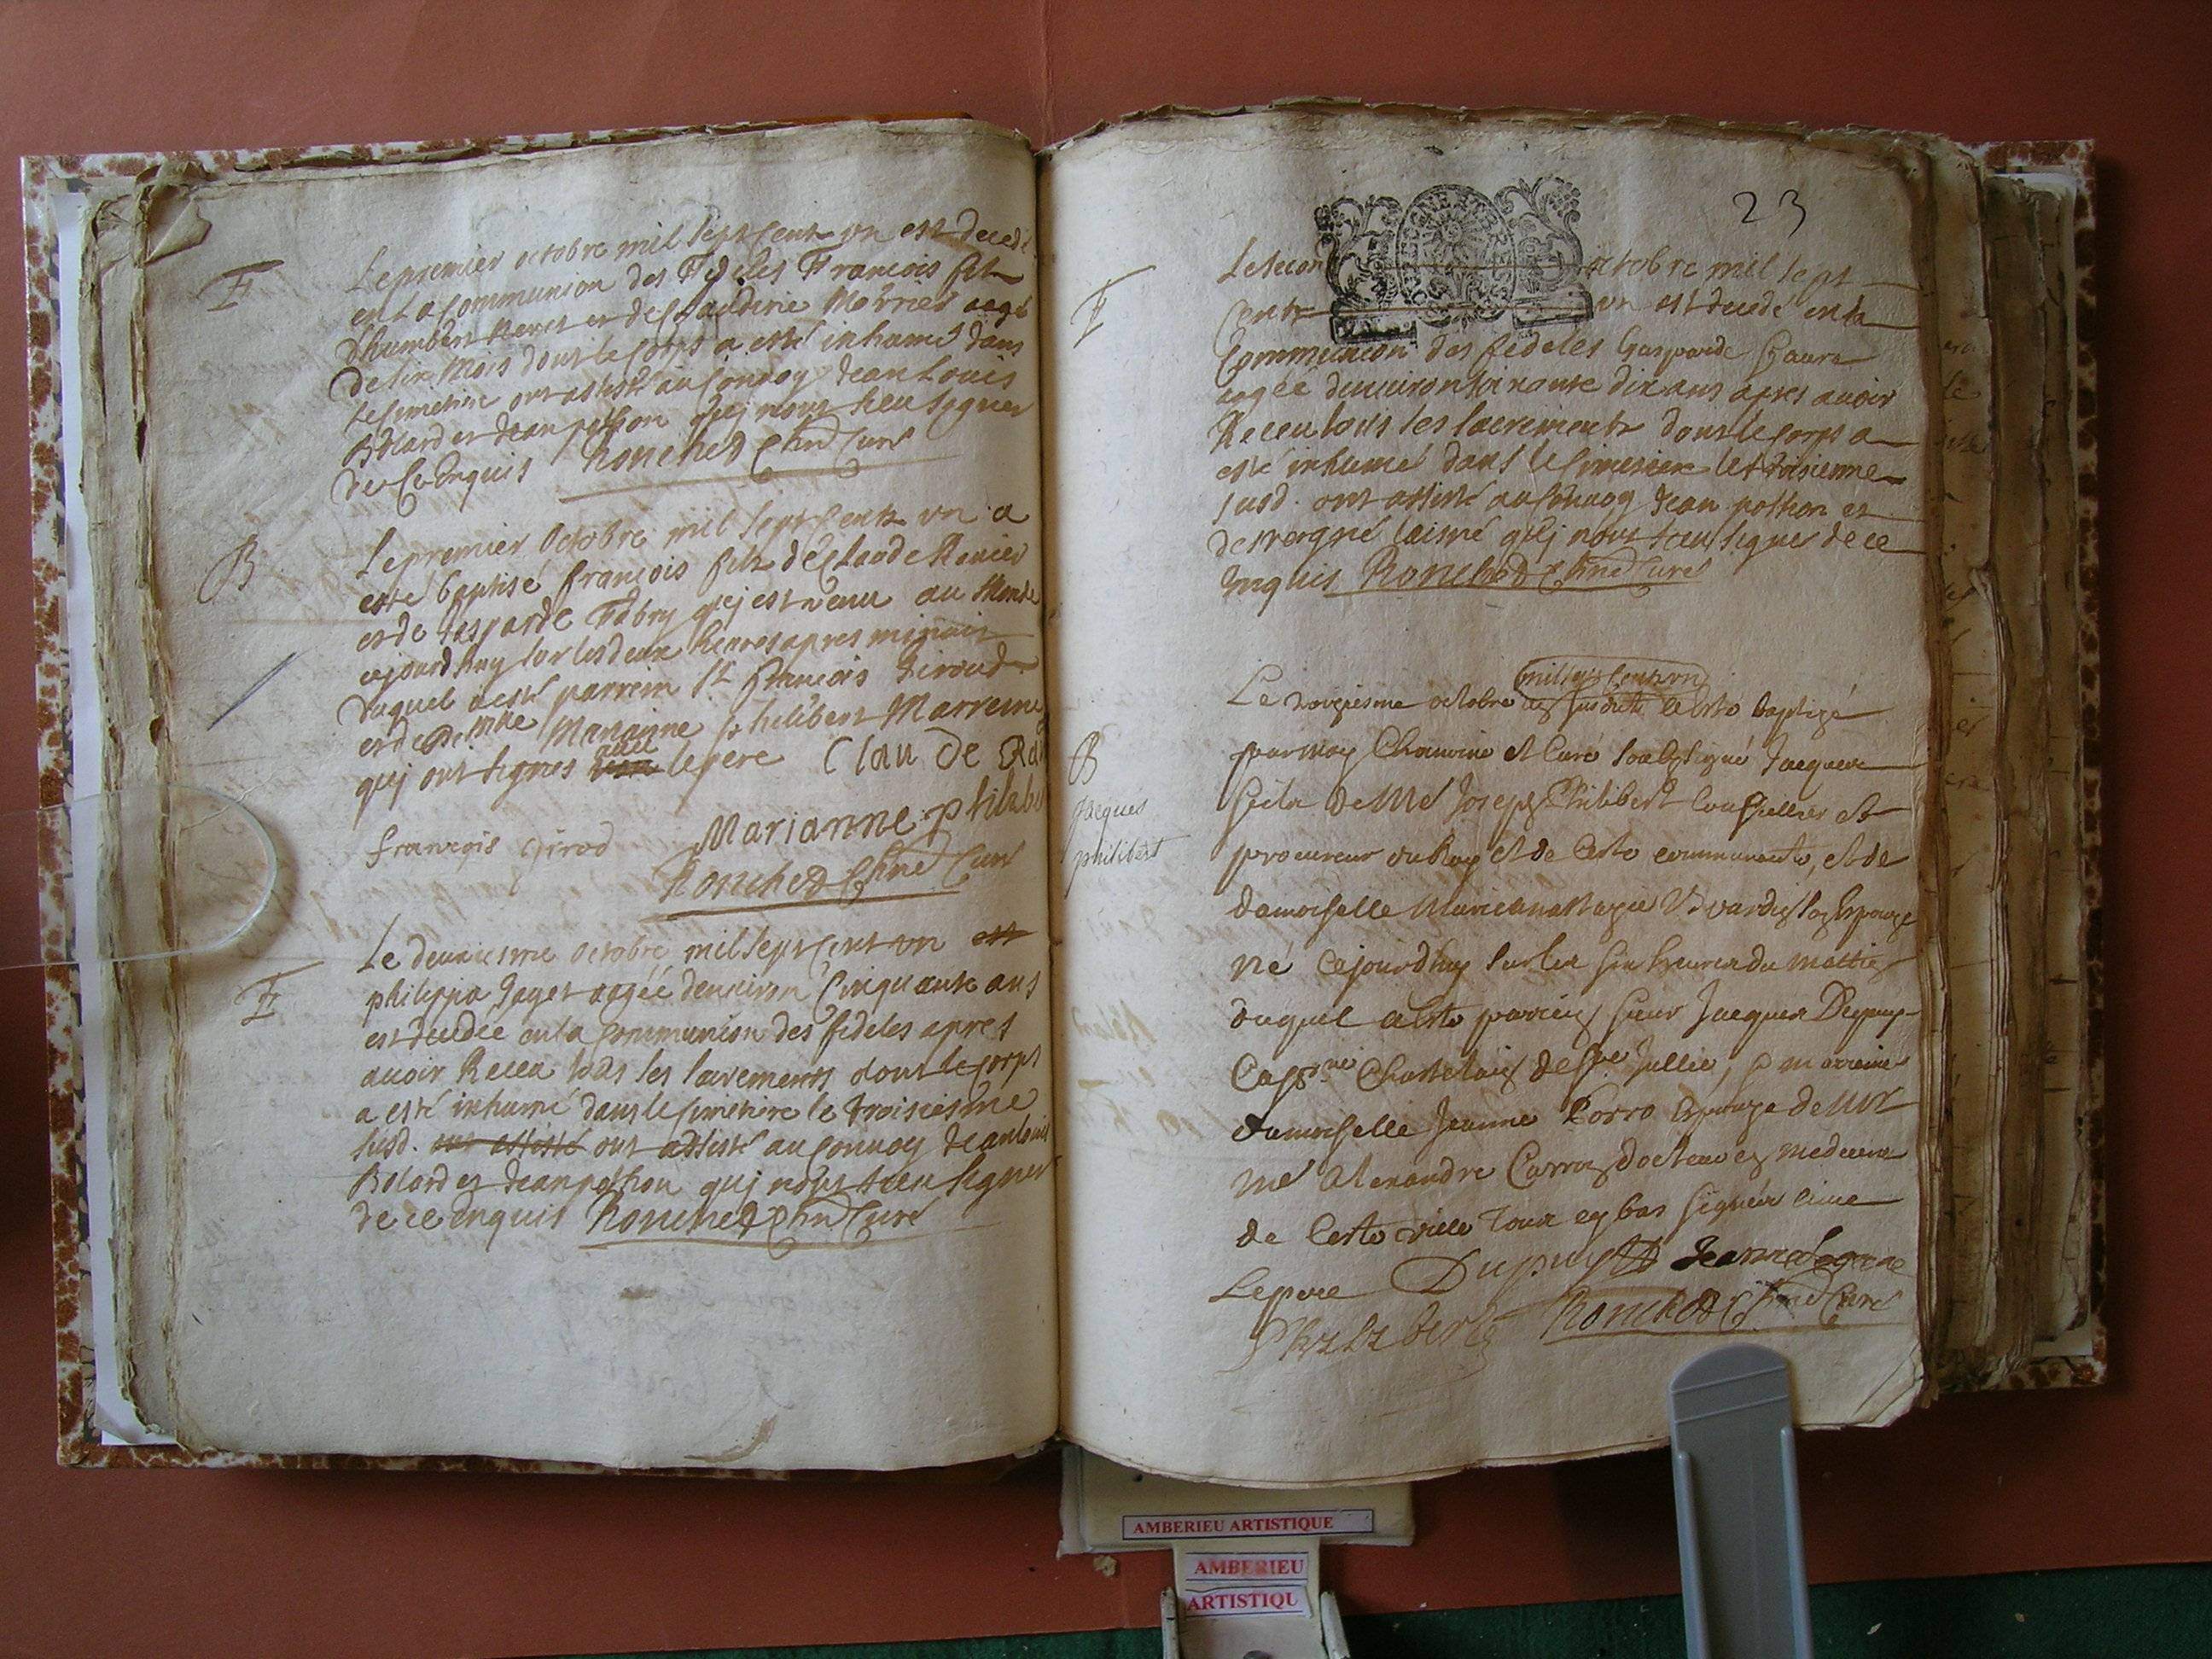 F
Le premier octobre mil sept cents un est decedé
en la communion des Fideles François fils
d'humbert et de Claudine aagé
de six mois dont le corps a esté inhumé dans
le simetiere ont assisté au convoy Jean Louis
Bolard et Jean pothon quj nont sceu signer
de ce Enquis Ronchet Chne Curé
B
Le premier Octobre mil sept cents un a
esté baptisé françois fils de Claude
et de Gasparde Fabry quj est venu au Monde
cejourdhuy sur les deux heures apres minuit
duquel a esté parrein Sr François Giroud
et de Mlle Marianne philibert Marreine
quj ont signes avec le pere Clau de
françois girod Marianne philibe
Ronchet Chne Curé
F
Le deuxiesme octobre mil sept cent un est
philippa Jaget aagéé denviron Cinquante ans
est decedée en la Communion des fideles apres
avoir Receu tous les sacrements dont le corps
a esté inhumé dans le simetiere le troisiesme
susd. ont assisté ont assisté au Convoy Jean louis
Bolard et Jean pothon quj nonts sceu signer
de ce Enquis Ronchet Chne Curé
23
F
Le secon octobre mil sept
Cents un est decedé en la
Communion des fideles Gasparde
aagéé denviron soixante dix ans apres avoir
Receu tous les sacrements dont le corps a
esté inhumé dans le simetiere le troisiesme
susd. ont assisté au Convoy Jean pothon et
laisné quj nont sceu signer de ce
Inquis Ronchet Chne Curé
mil sept cents un
Le octobre susdite a esté baptizé
B
par moy Chanoine et Curé soubsigné Jacques
Jacques
philibert
fils de Me Joseph Philibert Conseillier et
procureur du Roy et de cette communauté, et de
damoiselle son Espouze
né cejourdhuy sur les six heures du mattin
duquel a esté parrein sieur Jacques Dupuy
Chastelain de St Jullie, & marreine
damoiselle Jeanne Espouze de Mr
Me Alexandre Carron docteur en medecine
de cette ville tous en bas signés avec
Le pere Dupuy Jeanne
Philibert Ronchet Chne Curé
AMBERIEU ARTISTIQUE
AMBERIEU
ARTISTIQU